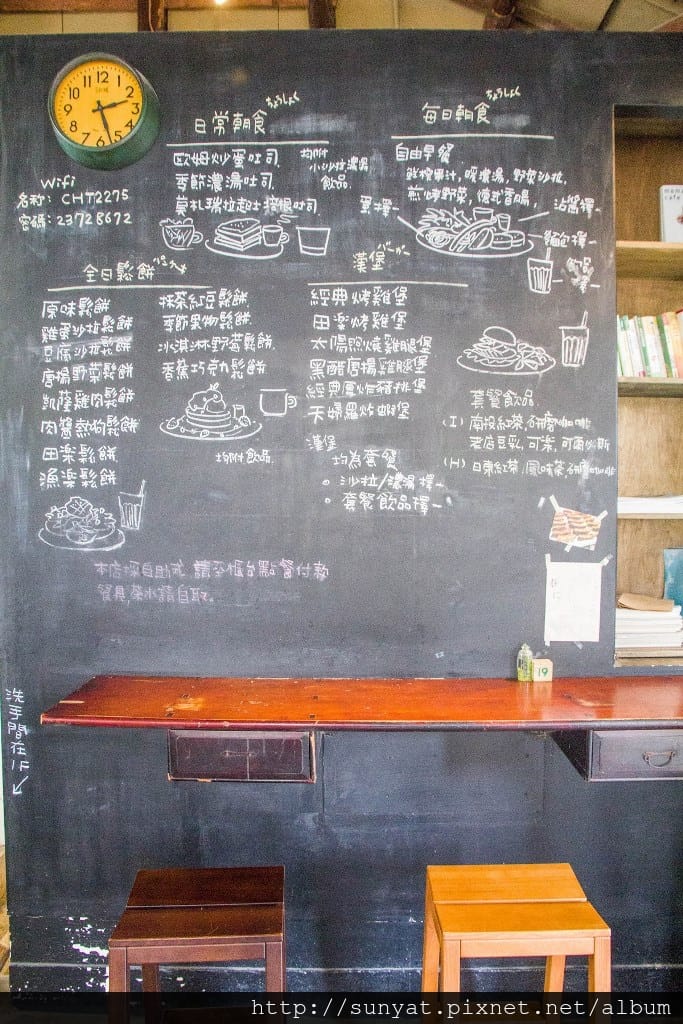 日常朝食
ちょうしょく
歐姆炒蛋吐司.
季節濃湯吐司.
莫札瑞拉起士
均附
小沙拉濃湯
飲品.
每日朝食
ちょうしょく
自由早餐
鮮榨果汁, 暖濃湯, 野菜沙拉,
煎烤野菜, 德式香腸,
蛋擇一
沾醬擇一
麵包擇一
Wifi
名称: CHT2275
密碼: 23728672
全日鬆餅
原味鬆餅
雞蛋沙拉鬆餅
豆腐沙拉鬆餅
唐揚野菜鬆餅
凱薩雞肉鬆餅
肉醬熱狗鬆餅
田楽鬆餅
漁楽鬆餅
抹茶紅豆鬆餅.
季節果物鬆餅.
沙淇淋野莓鬆餅.
香蕉巧克力鬆餅
均附飲品.
漢堡
バーガー
經典烤雞堡
田楽烤雞堡
太陽照燒雞腿堡
黑醋唐揚雞腿堡
經典厚炸豬排堡
天婦羅炸蝦堡
漢堡
均為套餐
。沙拉/濃湯擇一
。套餐飲品擇一
套餐飲品
(I) 南投紅茶. 研磨咖啡
老店豆乳, 可楽, 可爾必斯
(H) 日東紅茶 / 風味茶.
本店採自助式, 請至櫃台點餐付款
餐具, 茶水請自取.
洗手間在1F
19
http://sunyat.pixnet.net/album